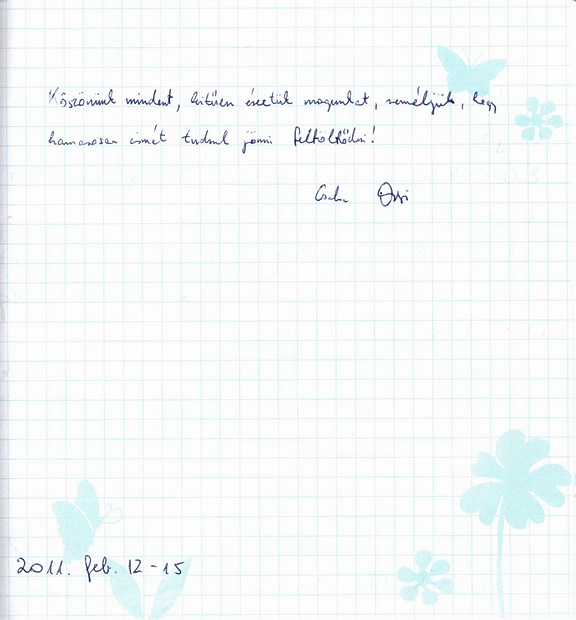 Köszönünk mindent, kitűnően éreztük magunkat, reméljük, hogy
hamarosan ismét tudunk jönni feltöltődni!
Csaba Orsi
2011. feb. 12-15